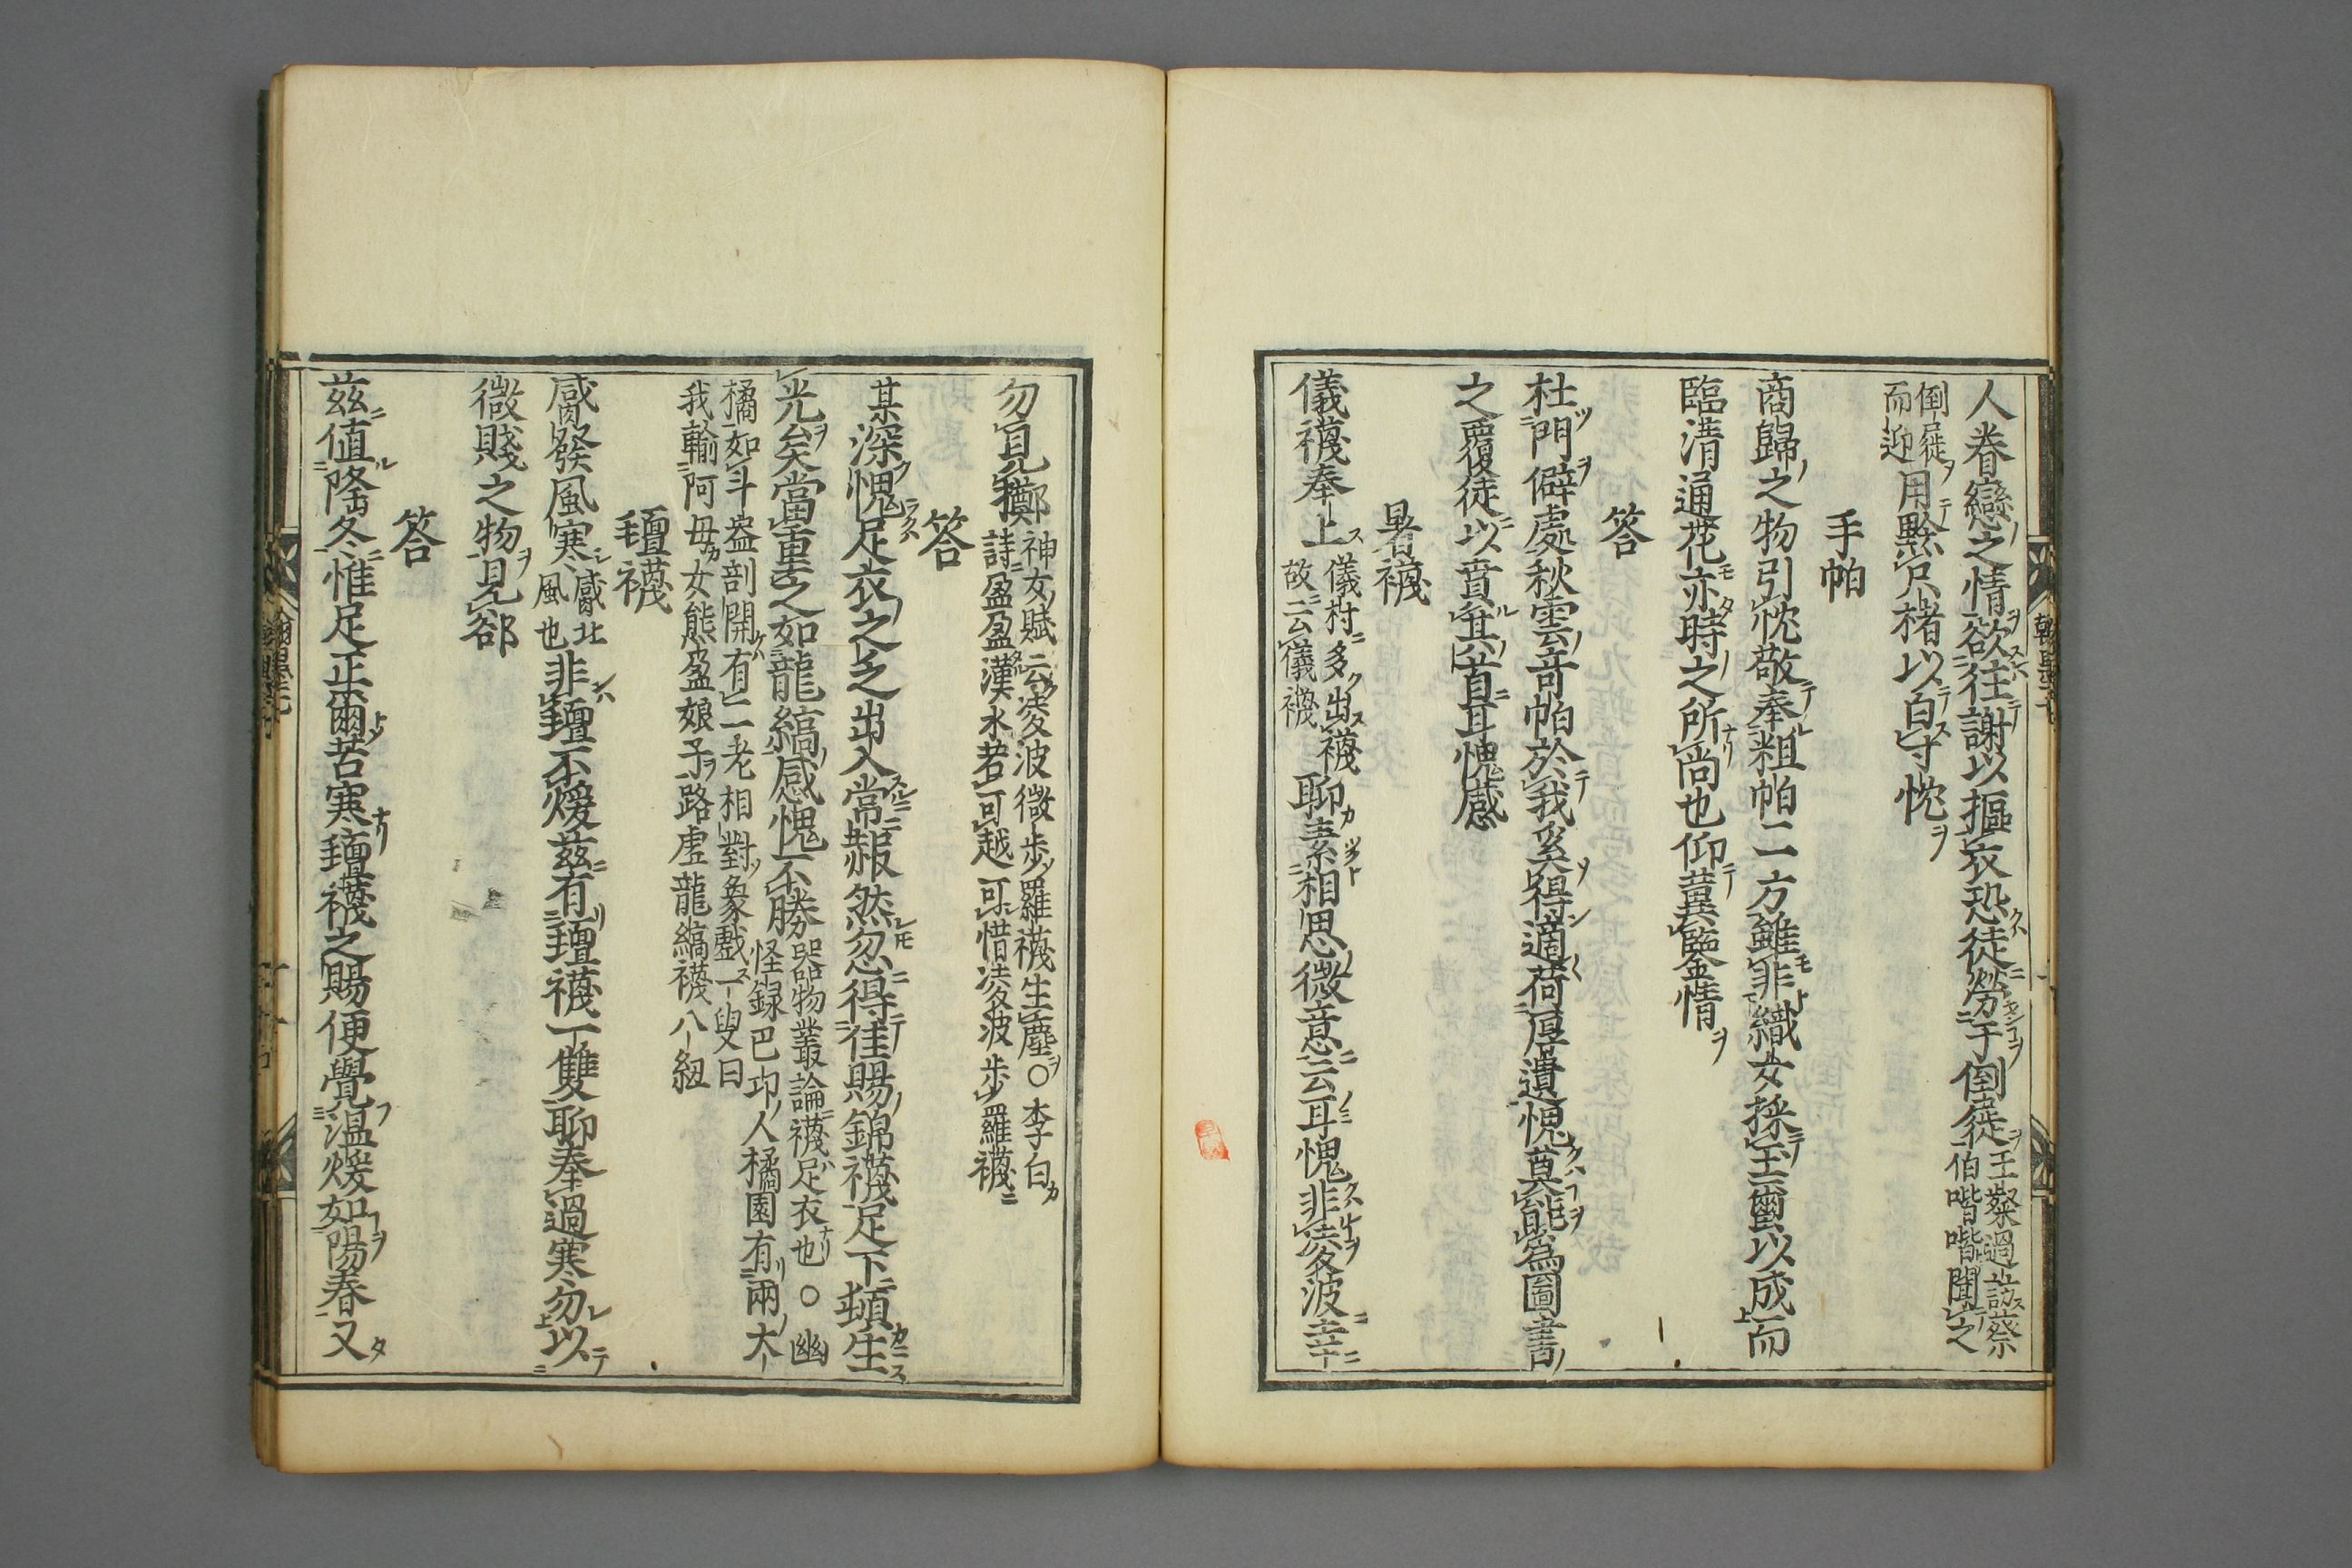 人眷戀之情欲往謝以摳衣恐徒勞于倒屣王粲過訪蔡伯喈喈聞之
倒屣而迎用黙尺楮以白寸忱
手帕
商歸之物引忱敬奉粗帕二方雖非織女採玉璽以成而
臨清通花亦時之所尚也仰蕢鑒情
答
杜門僻處秋雲竒帕於我奚得適荷厚遺愧莫能為圖書
之覆徒以賁其首耳愧感
暑襪
儀襪奉上儀村多出襪故云儀襪聊素相思微意云耳愧非凌波幸
勿見擲神女賦云凌波微步羅襪生塵○李白詩盈盈漢水若可越可惜凌波步羅襪
答
某深愧足衣之乏出入常赧然忽得佳賜錦襪足下頓生
光矣當重之如龍縞感愧不勝器物叢論襪足衣也○幽怪録巴卭人橘園有兩大
橘如斗盎剖開有二老相對象戲一叟曰我輸阿母女態盈娘子路虚龍縞襪八紐
氊襪
咸發風寒咸北風也非氊不煖兹有氊襪一雙聊奉過寒勿以
微賤之物見郤
答
兹值隆冬惟足正爾苦寒氊襪之賜便覺温煖如陽春又